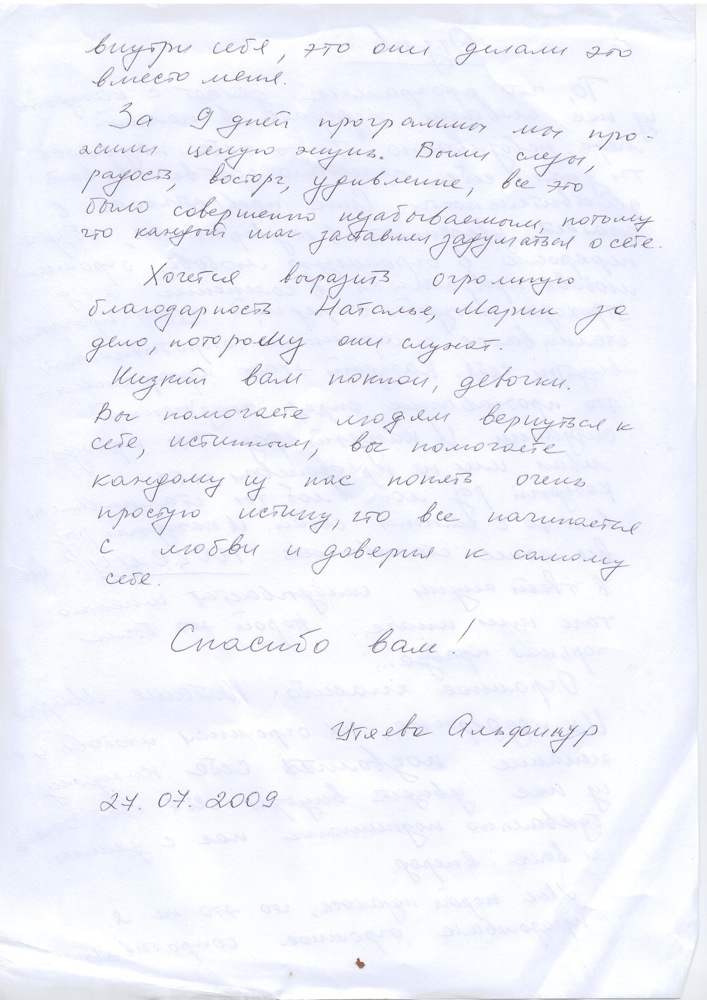 внутри себя, это они делали это
вместо меня.
За 9 дней программы мы про-
жили целую жизнь. Были слезы,
радость, восторг, удивление, все это
было совершенно незабываемым, потому
что каждый шаг заставлял задуматься о себе.
Хочется выразить огромную
благодарность Наталье, Марии за
дело, которому они служат.
Низкий вам поклон, девочки.
Вы помогаете людям вернуться к
себе, истинным, вы помогаете
каждому из нас понять очень
простую истину, что все начинается
с любви и доверия к самому
себе.
Спасибо вам!
Утяева Альфинур
27.07.2009